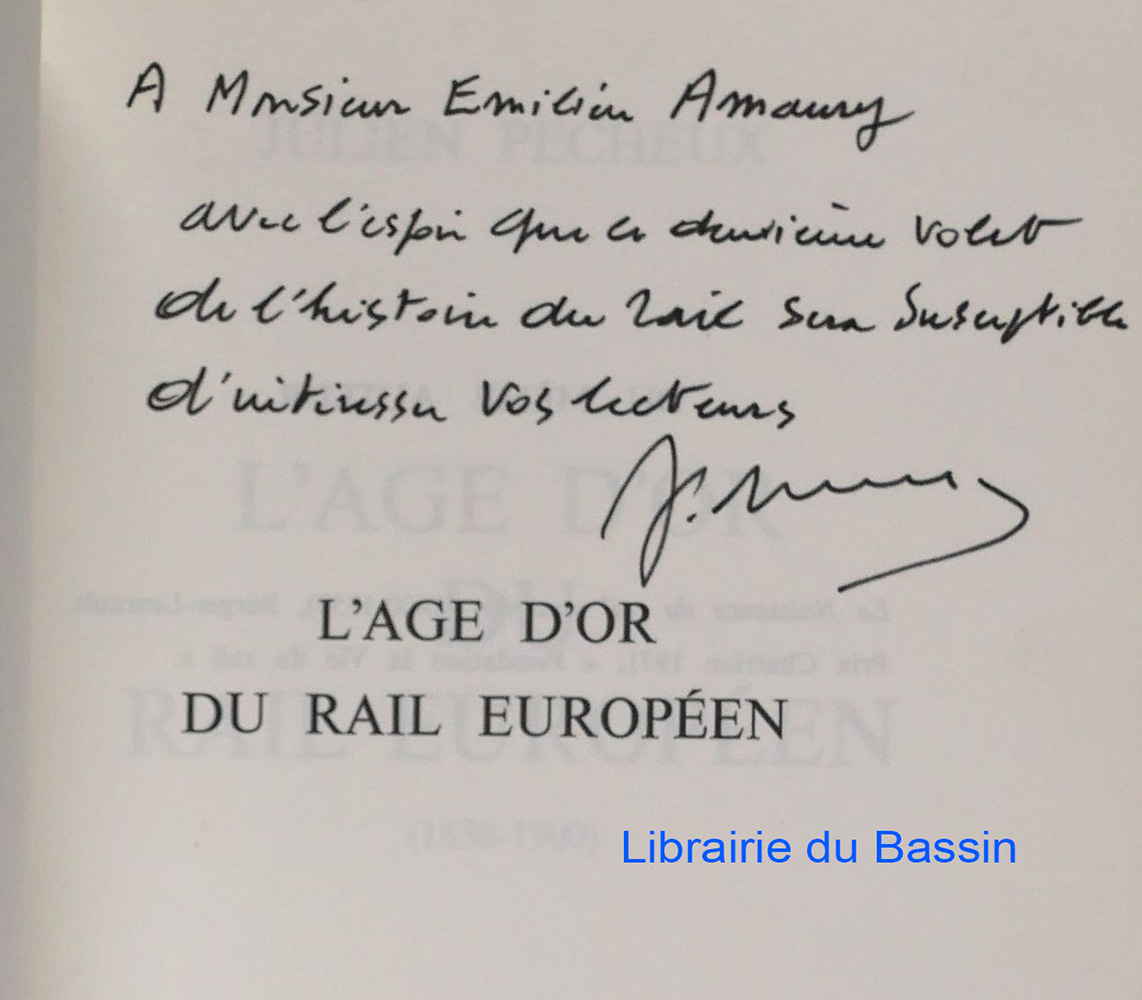 A Monsieur Emilien Amaury
avec l'espoir que ce deuxième volet
de l'histoire du rail sera susceptible
d'intéresser vos lecteurs
L'AGE D'OR
DU RAIL EUROPÉEN
Librairie du Bassin